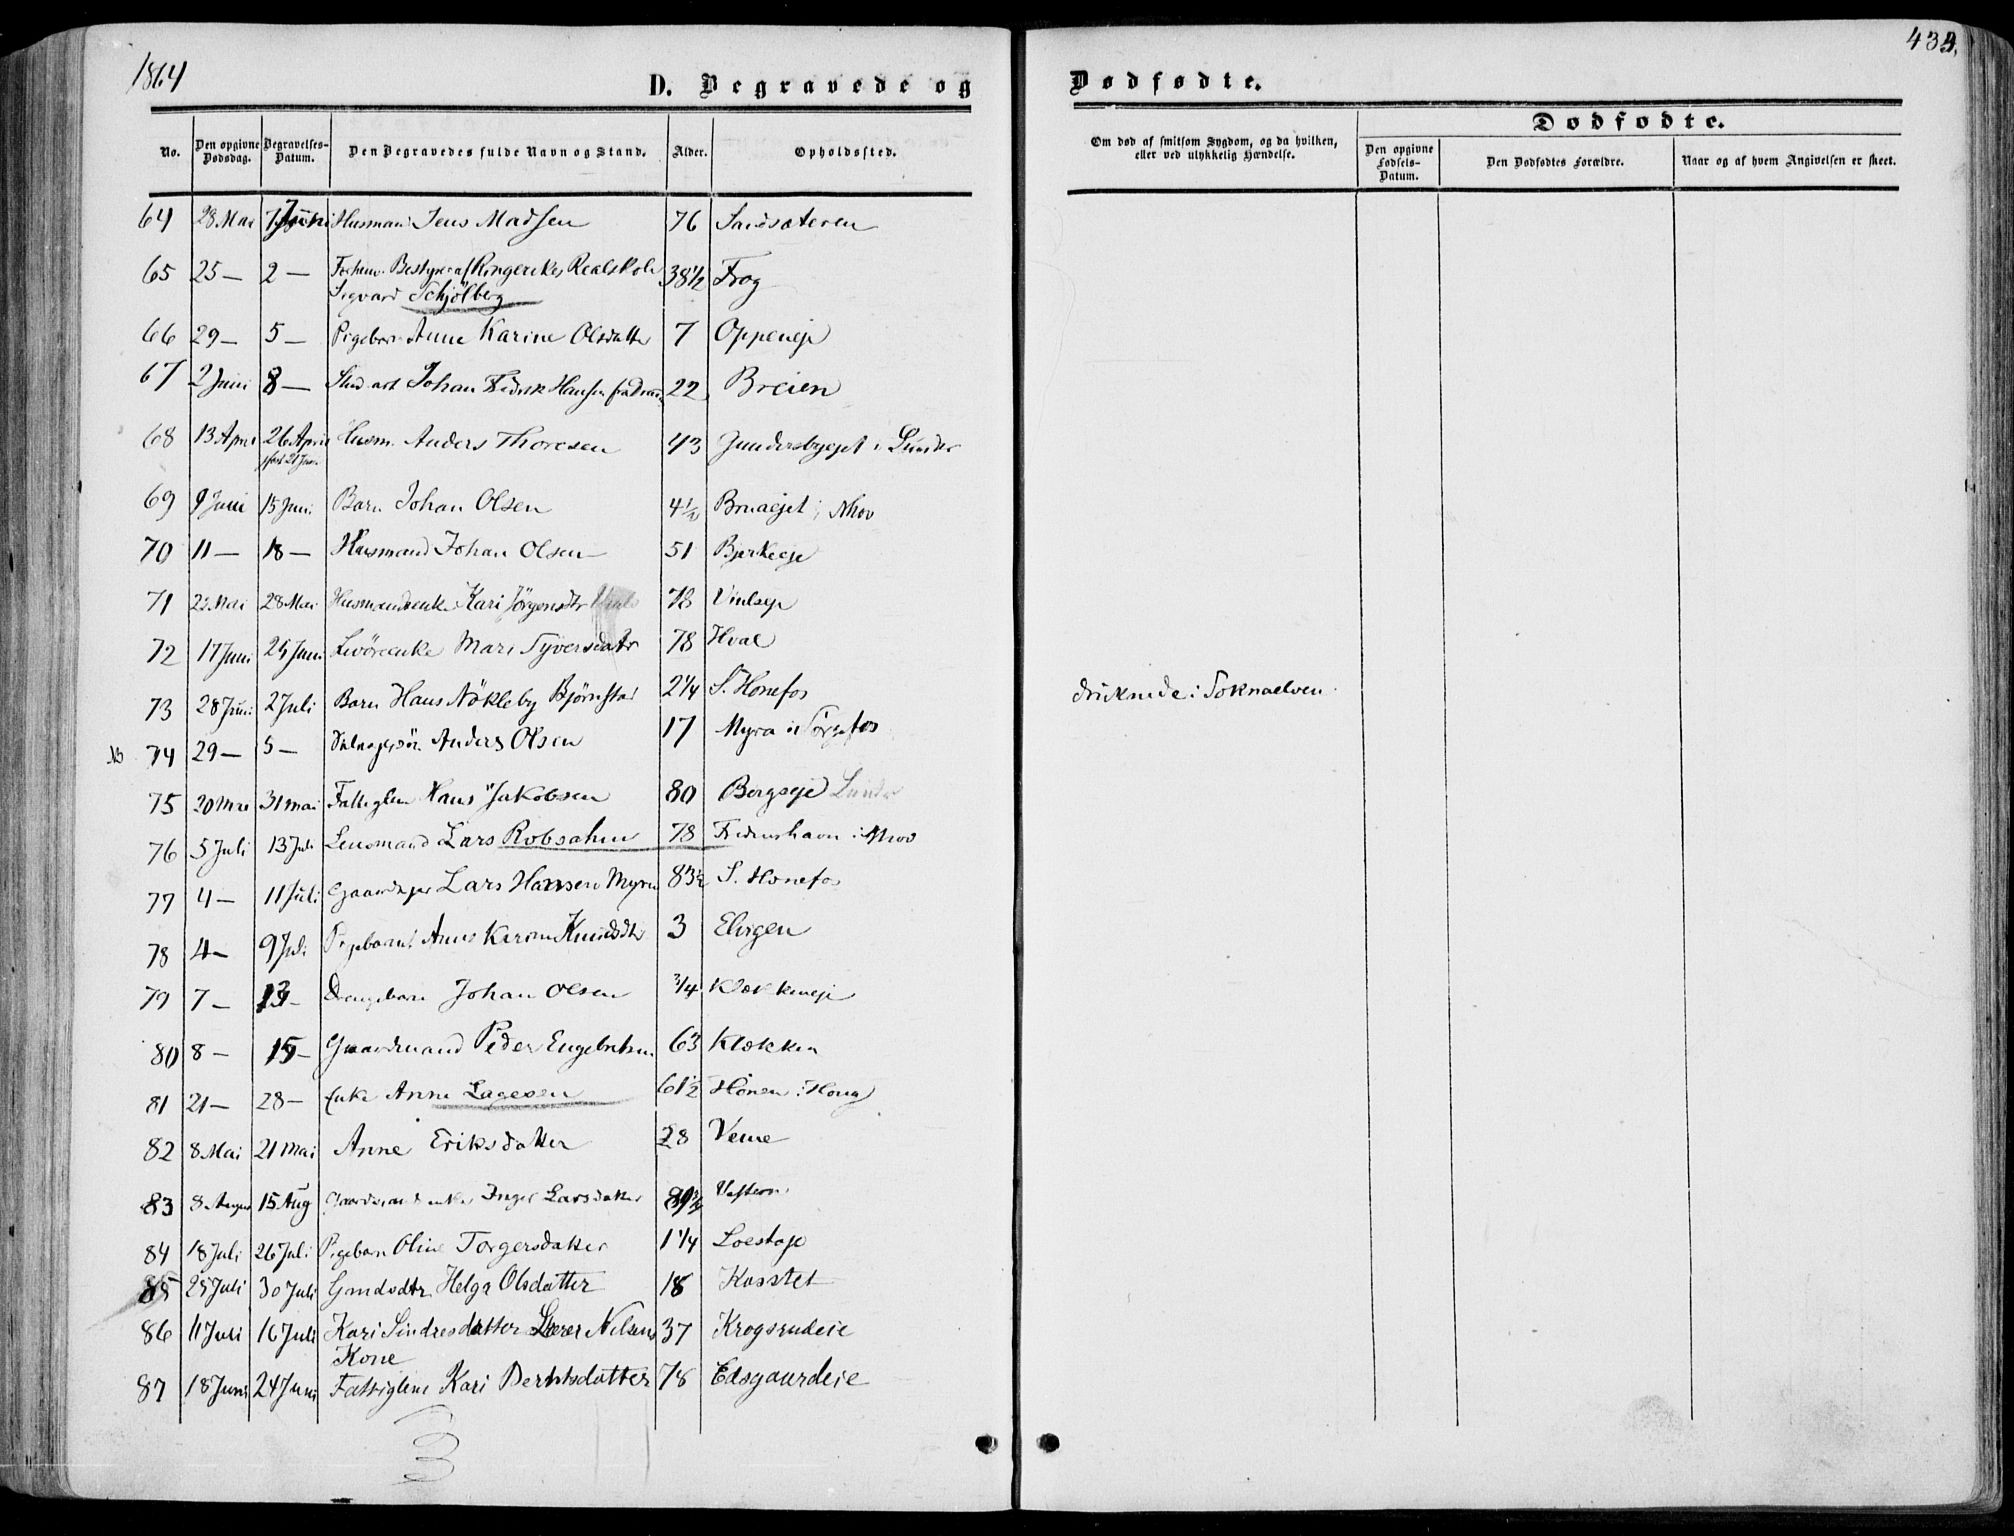 1864
D. Begravede og
No. Den opgivne Dødsdag. Begravelses-Datum. Den Begravedes fulde Navn og Stand. Alder. Opholdssted.
64 28 Mai Juni Husmand Jens Madsen 76 Sandsæteren
65 25 — 2 — Bestyrer af Ringerikes Realskole 38 1/2 Frog
Sigvard Schjölberg
66 29 — 5 — Pigebarn Anne Karine Olsdatter 7 Oppeneje
67 2 Juni 8 — Johan Fredrik Hansen 22 Breien
68 13 April 26 April Husm. Anders Thoresen 43 i Lunder
69 9 Juni 15 Juni Barn Johan Olsen 4 1/2 i Nhov
70 11 — 18 — Husmand Johan Olsen 51 Bjerkeeje
71 Mai 28 Mai Husmandsenke Kari Jörgensdtr 78
72 17 Juni 25 Juni Mari Syversdatter 78 Hval
73 28 Juni 2 Juli Barn Hans Nökleby Björnstad 2 1/4 S. Hönefos
NB 74 29 — 5 — Anders Olsen 17 Myra
75 20 Mai 31 Mai Fattiglem Hans Jakobsen 80 Borgseje Lunder
76 5 Juli 13 Juli Lensmand Lars Robsahm 78 i Nhov
77 4 — 11 Juli Gaardejer Lars Hansen Myra 83 1/2 S. Hönefos
78 4 — 9 Juli Pigebarn Anne Karine Knudsdtr 3
79 7 — 13 — Drengebarn Johan Olsen 3/4 Klækkeneje
80 8 — 15 — Gaardmand Peder Engebretsen 63 Klækken
81 21 — 28 — Enke Anne Lagesen 61 1/2 Hönen i Houg
82 8 Mai 21 Mai Anne Eriksdatter 28 Veme
83 8 August 15 Aug Gaardmandsenke Inger Larsdatter Vestern
84 18 Juli 26 Juli Pigebarn Oline Torgersdatter 1 1/4
85 25 Juli 30 Juli Gmdsdtr. Helga Olsdatter 18 Kosstet
86 11 Juli 16 Juli Kari Sindresdatter Lærer Nilsens 37 Krogsrudeie
Kone
87 18 Juni 24 Juni Fattiglem Kari Berntsdatter 78 Edsgaardeie
Dødfødte.
Om død af smitsom Sygdom, og da hvilken, eller ved ulykkelig Hændelse.
Dødfødte.
Den opgivne Fødsels-Datum. Den Dødfødtes Forældre. Naar og af hvem Angivelsen er skeet.
druknede i Soknaelven